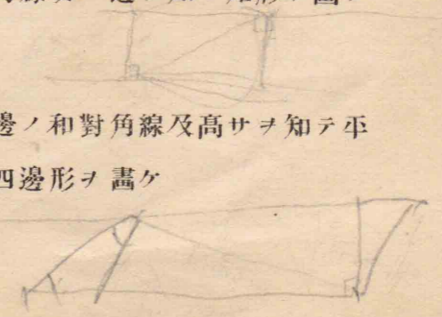 邊ノ和對角線及高サヲ知テ平
四邊形ヲ畫ケ